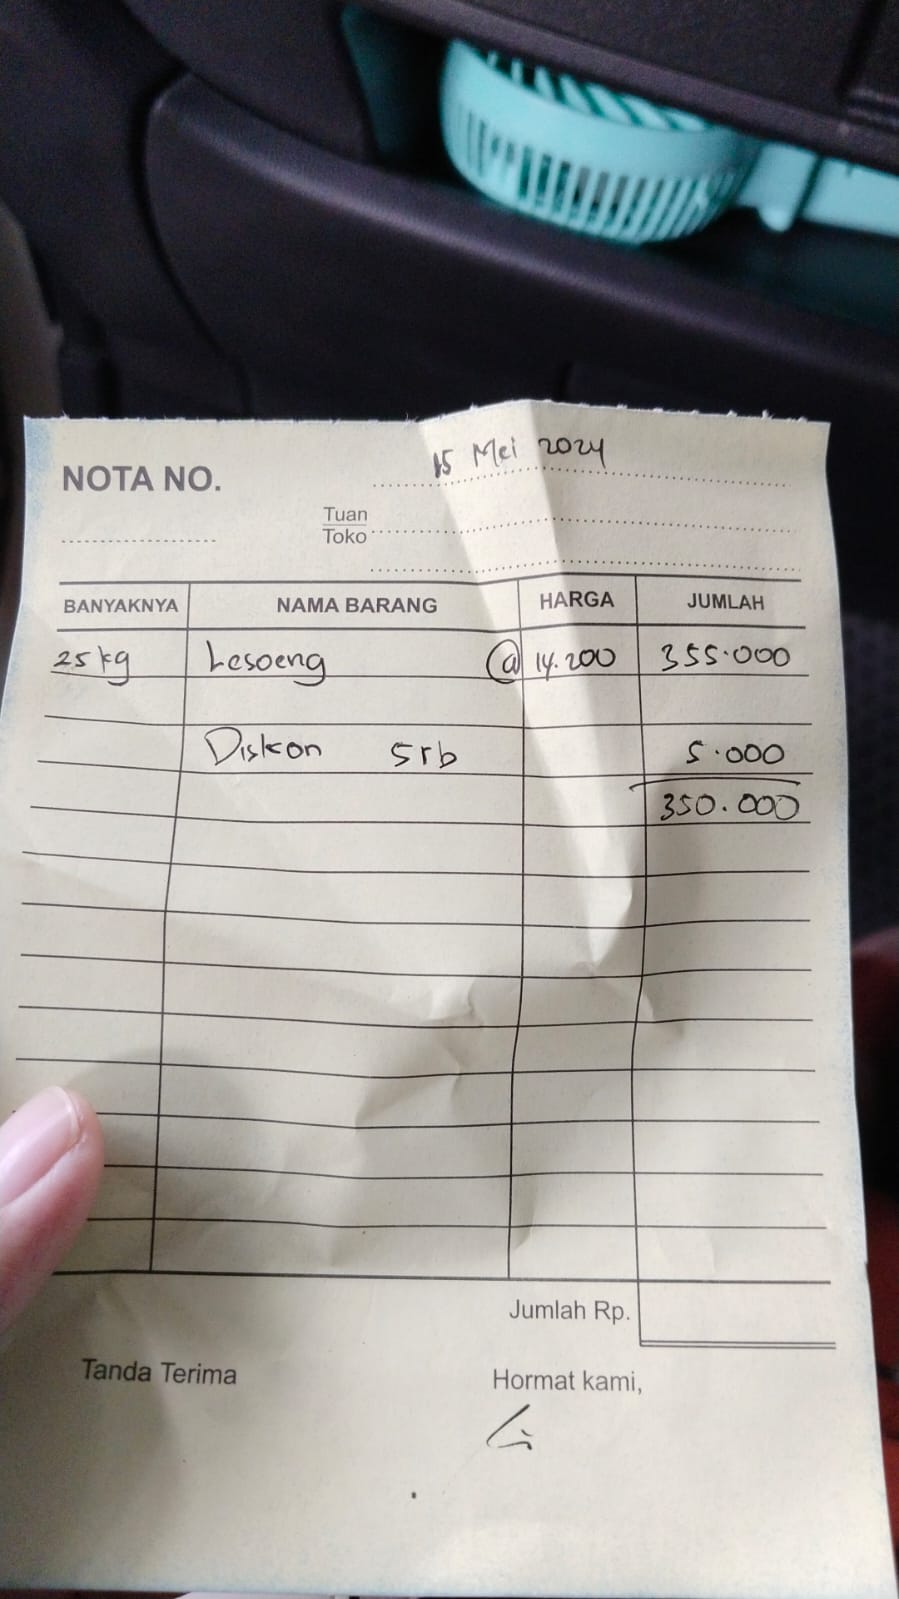 15 Mei 2024
NOTA NO.
Tuan
Toko
BANYAKNYA NAMA BARANG HARGA JUMLAH
25 kg Lesoeng @ 14.200 355.000
Diskon 5rb 5.000
350.000
Jumlah Rp.
Tanda Terima Hormat kami,